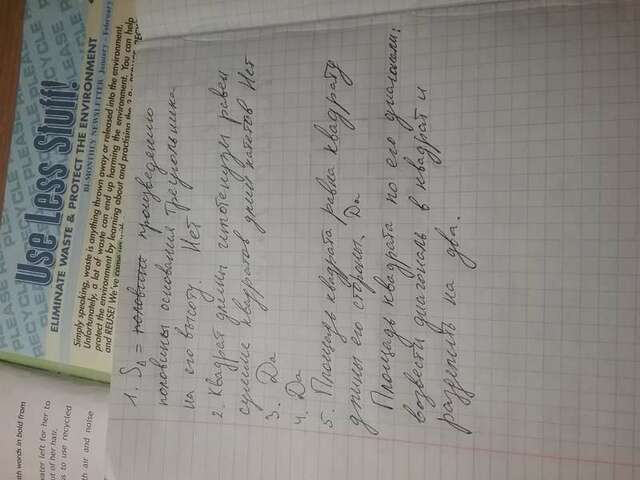 ath words in bold from
water left for her to
ut of her hair.
s to use recycled
th air and noise
PLEASE RECYCLE PLEASE
RECYCLE PLEASE RECYCLE
Use Less Stuff!
ELIMINATE WASTE & PROTECT THE ENVIRONMENT
BI-MONTHLY NEWSLETTER January – February
Simply speaking, waste is anything thrown away or released into the environment.
Unfortunately, a lot of waste can end up harming the environment. You can help
protect the environment by learning about and practising the
and REUSE! We've come up
1. S∆ = половине произведению
половины основания треугольника
на его высоту. Нет
2. Квадрат длины гипотенузы равен
сумме квадратов длин катетов Нет
3. Да
4. Да
5. Площадь квадрата равна квадрату
длины его стороны. Да
Площадь квадрата по его диагонали:
возвести диагональ в квадрат и
разделить на два.